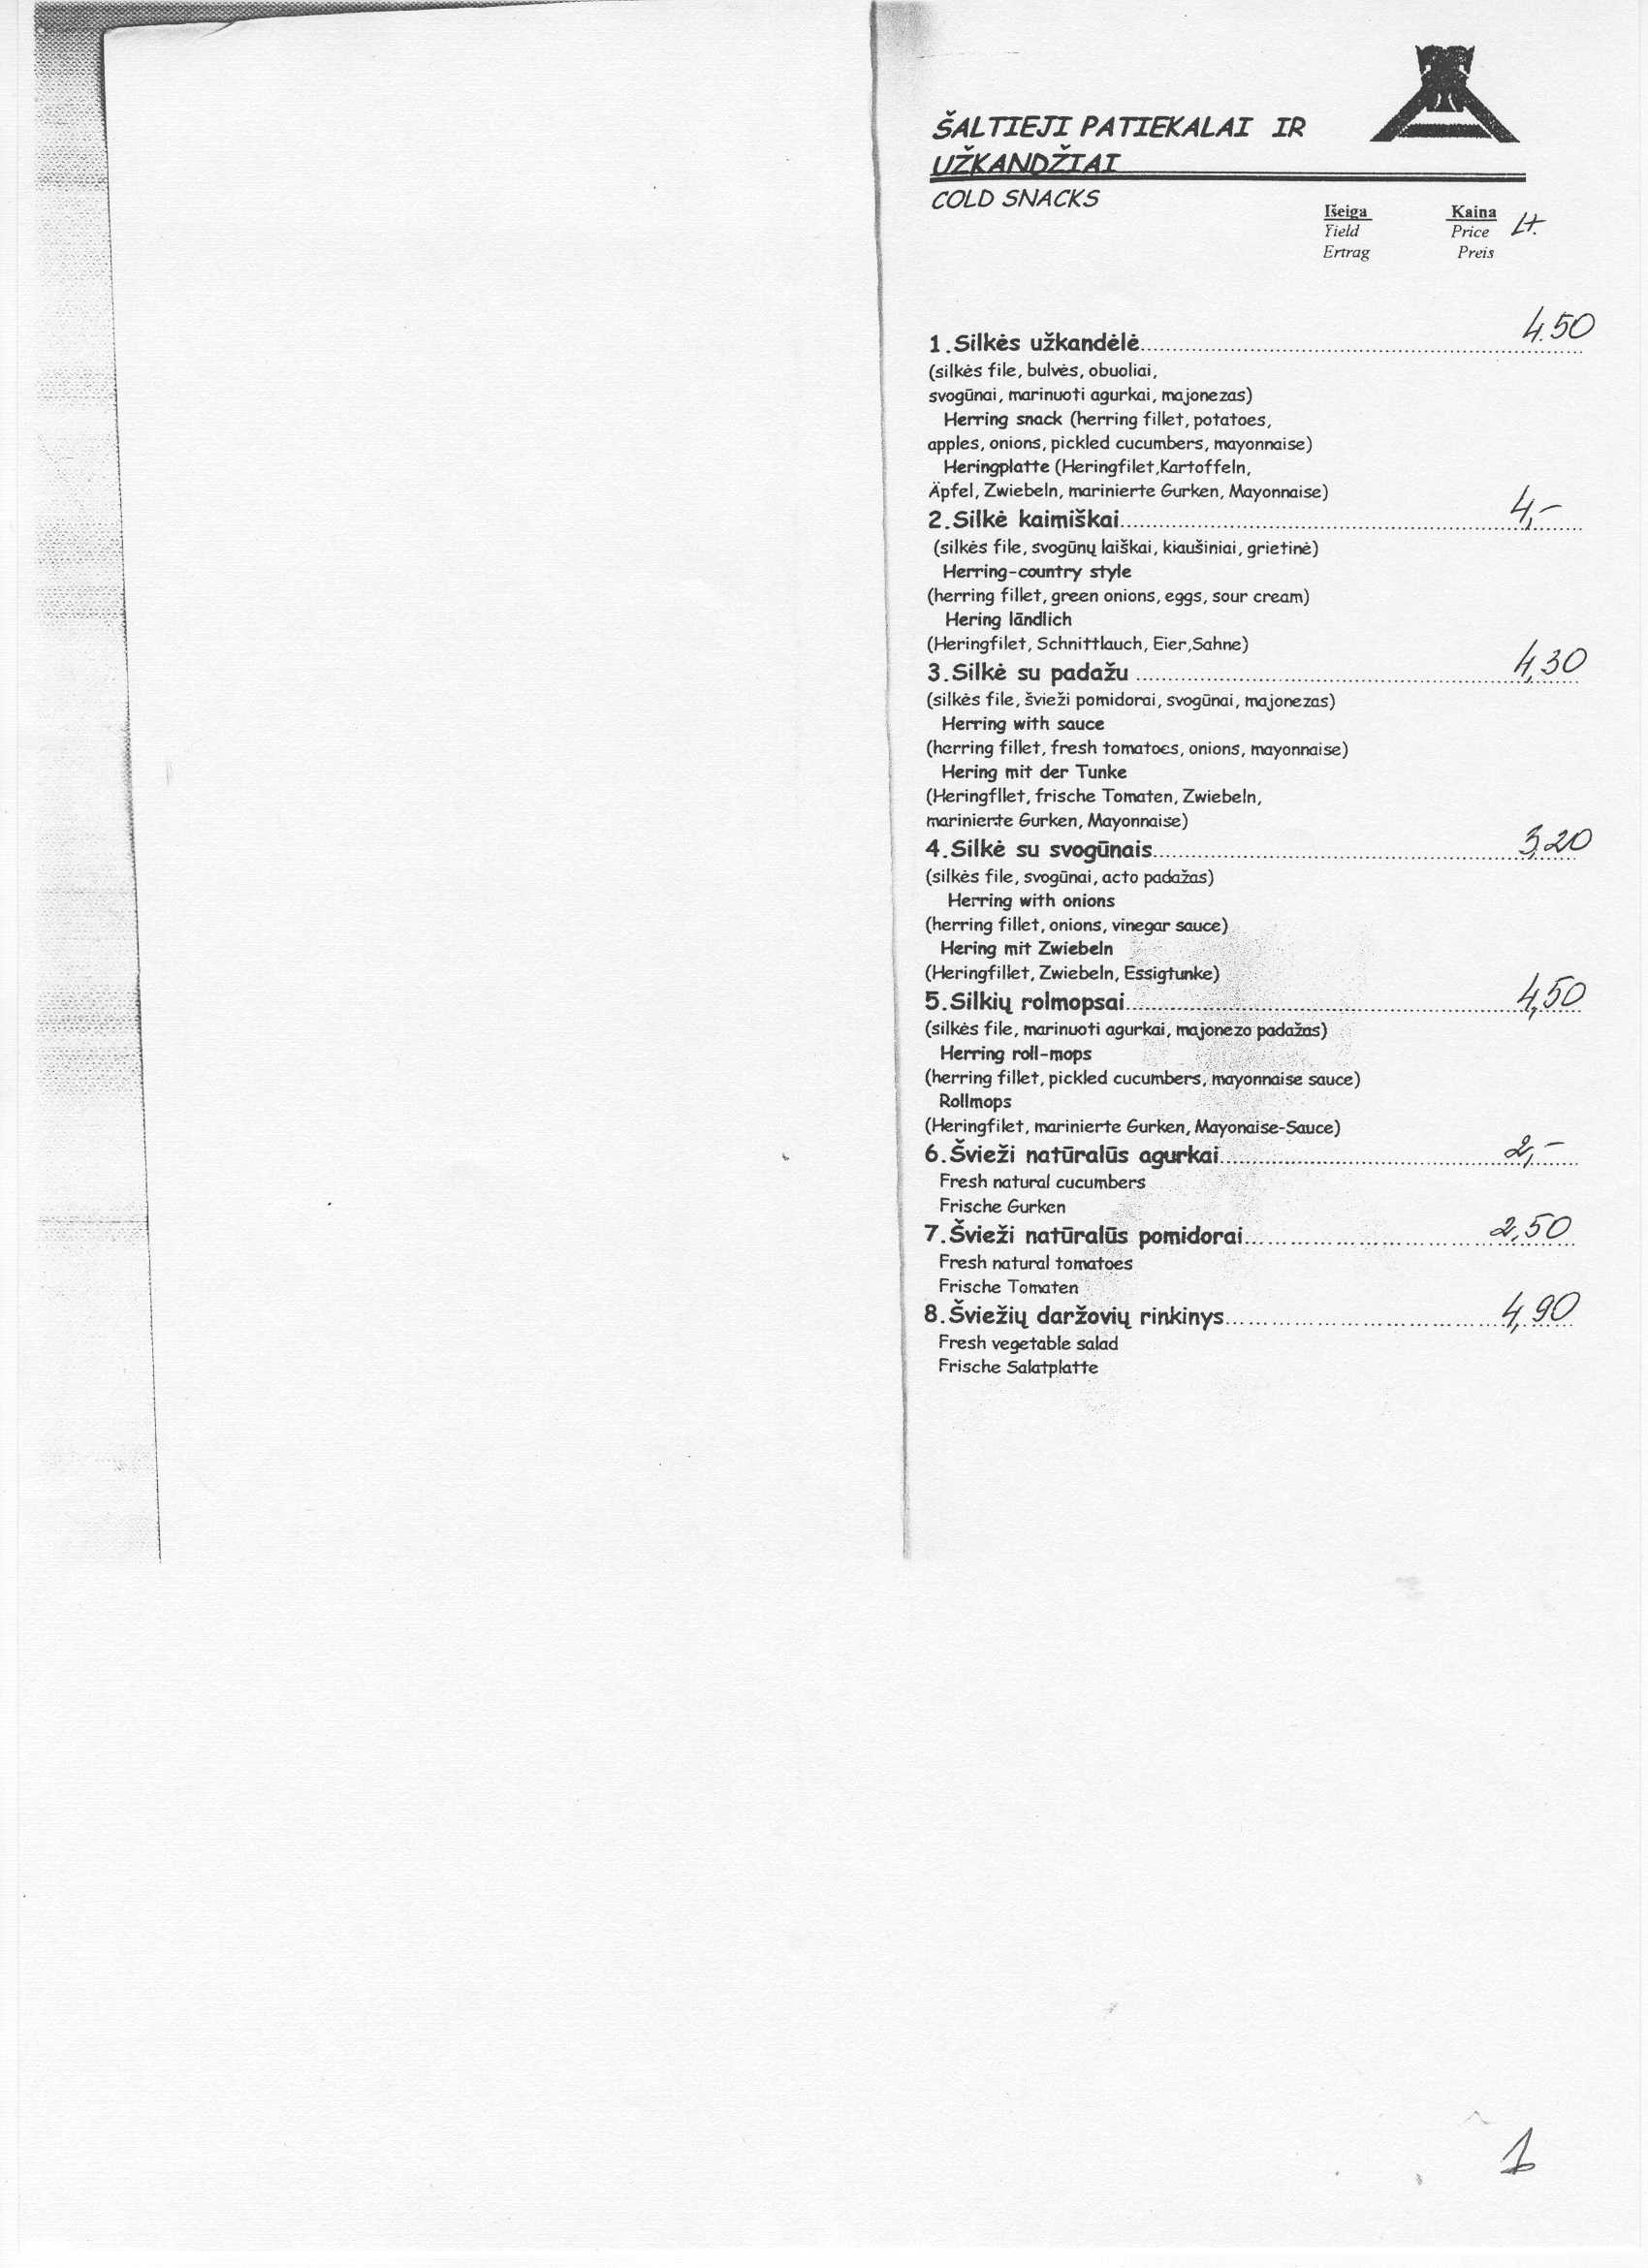 ŠALTIEJI PATIEKALAI IR
UŽKANDŽIAI
COLD SNACKS
Išeiga Kaina Lt.
Yield Price
Ertrag Preis
1.Silkės užkandėlė 4.50
(silkės file, bulvės, obuoliai,
svogūnai, marinuoti agurkai, majonezas)
Herring snack (herring fillet, potatoes,
apples, onions, pickled cucumbers, mayonnaise)
Heringplatte (Heringfilet,Kartoffeln,
Äpfel, Zwiebeln, marinierte Gurken, Mayonnaise)
2.Silkė kaimiškai 4,-
(silkės file, svogūnų laiškai, kiaušiniai, grietinė)
Herring-country style
(herring fillet, green onions, eggs, sour cream)
Hering ländlich
(Heringfilet, Schnittlauch, Eier,Sahne)
3.Silkė su padažu 4,30
(silkės file, švieži pomidorai, svogūnai, majonezas)
Herring with sauce
(herring fillet, fresh tomatoes, onions, mayonnaise)
Hering mit der Tunke
(Heringfllet, frische Tomaten, Zwiebeln,
marinierte Gurken, Mayonnaise)
4.Silkė su svogūnais 3,20
(silkės file, svogūnai, acto padažas)
Herring with onions
(herring fillet, onions, vinegar sauce)
Hering mit Zwiebeln
(Heringfillet, Zwiebeln, Essigtunke)
5.Silkių rolmopsai 4,50
(silkės file, marinuoti agurkai, majonezo padažas)
Herring roll-mops
(herring fillet, pickled cucumbers, mayonnaise sauce)
Rollmops
(Heringfilet, marinierte Gurken, Mayonaise-Sauce)
6.Švieži natūralūs agurkai 2,-
Fresh natural cucumbers
Frische Gurken
7.Švieži natūralūs pomidorai 2,50
Fresh natural tomatoes
Frische Tomaten
8.Šviežių daržovių rinkinys 4,90
Fresh vegetable salad
Frische Salatplatte
1